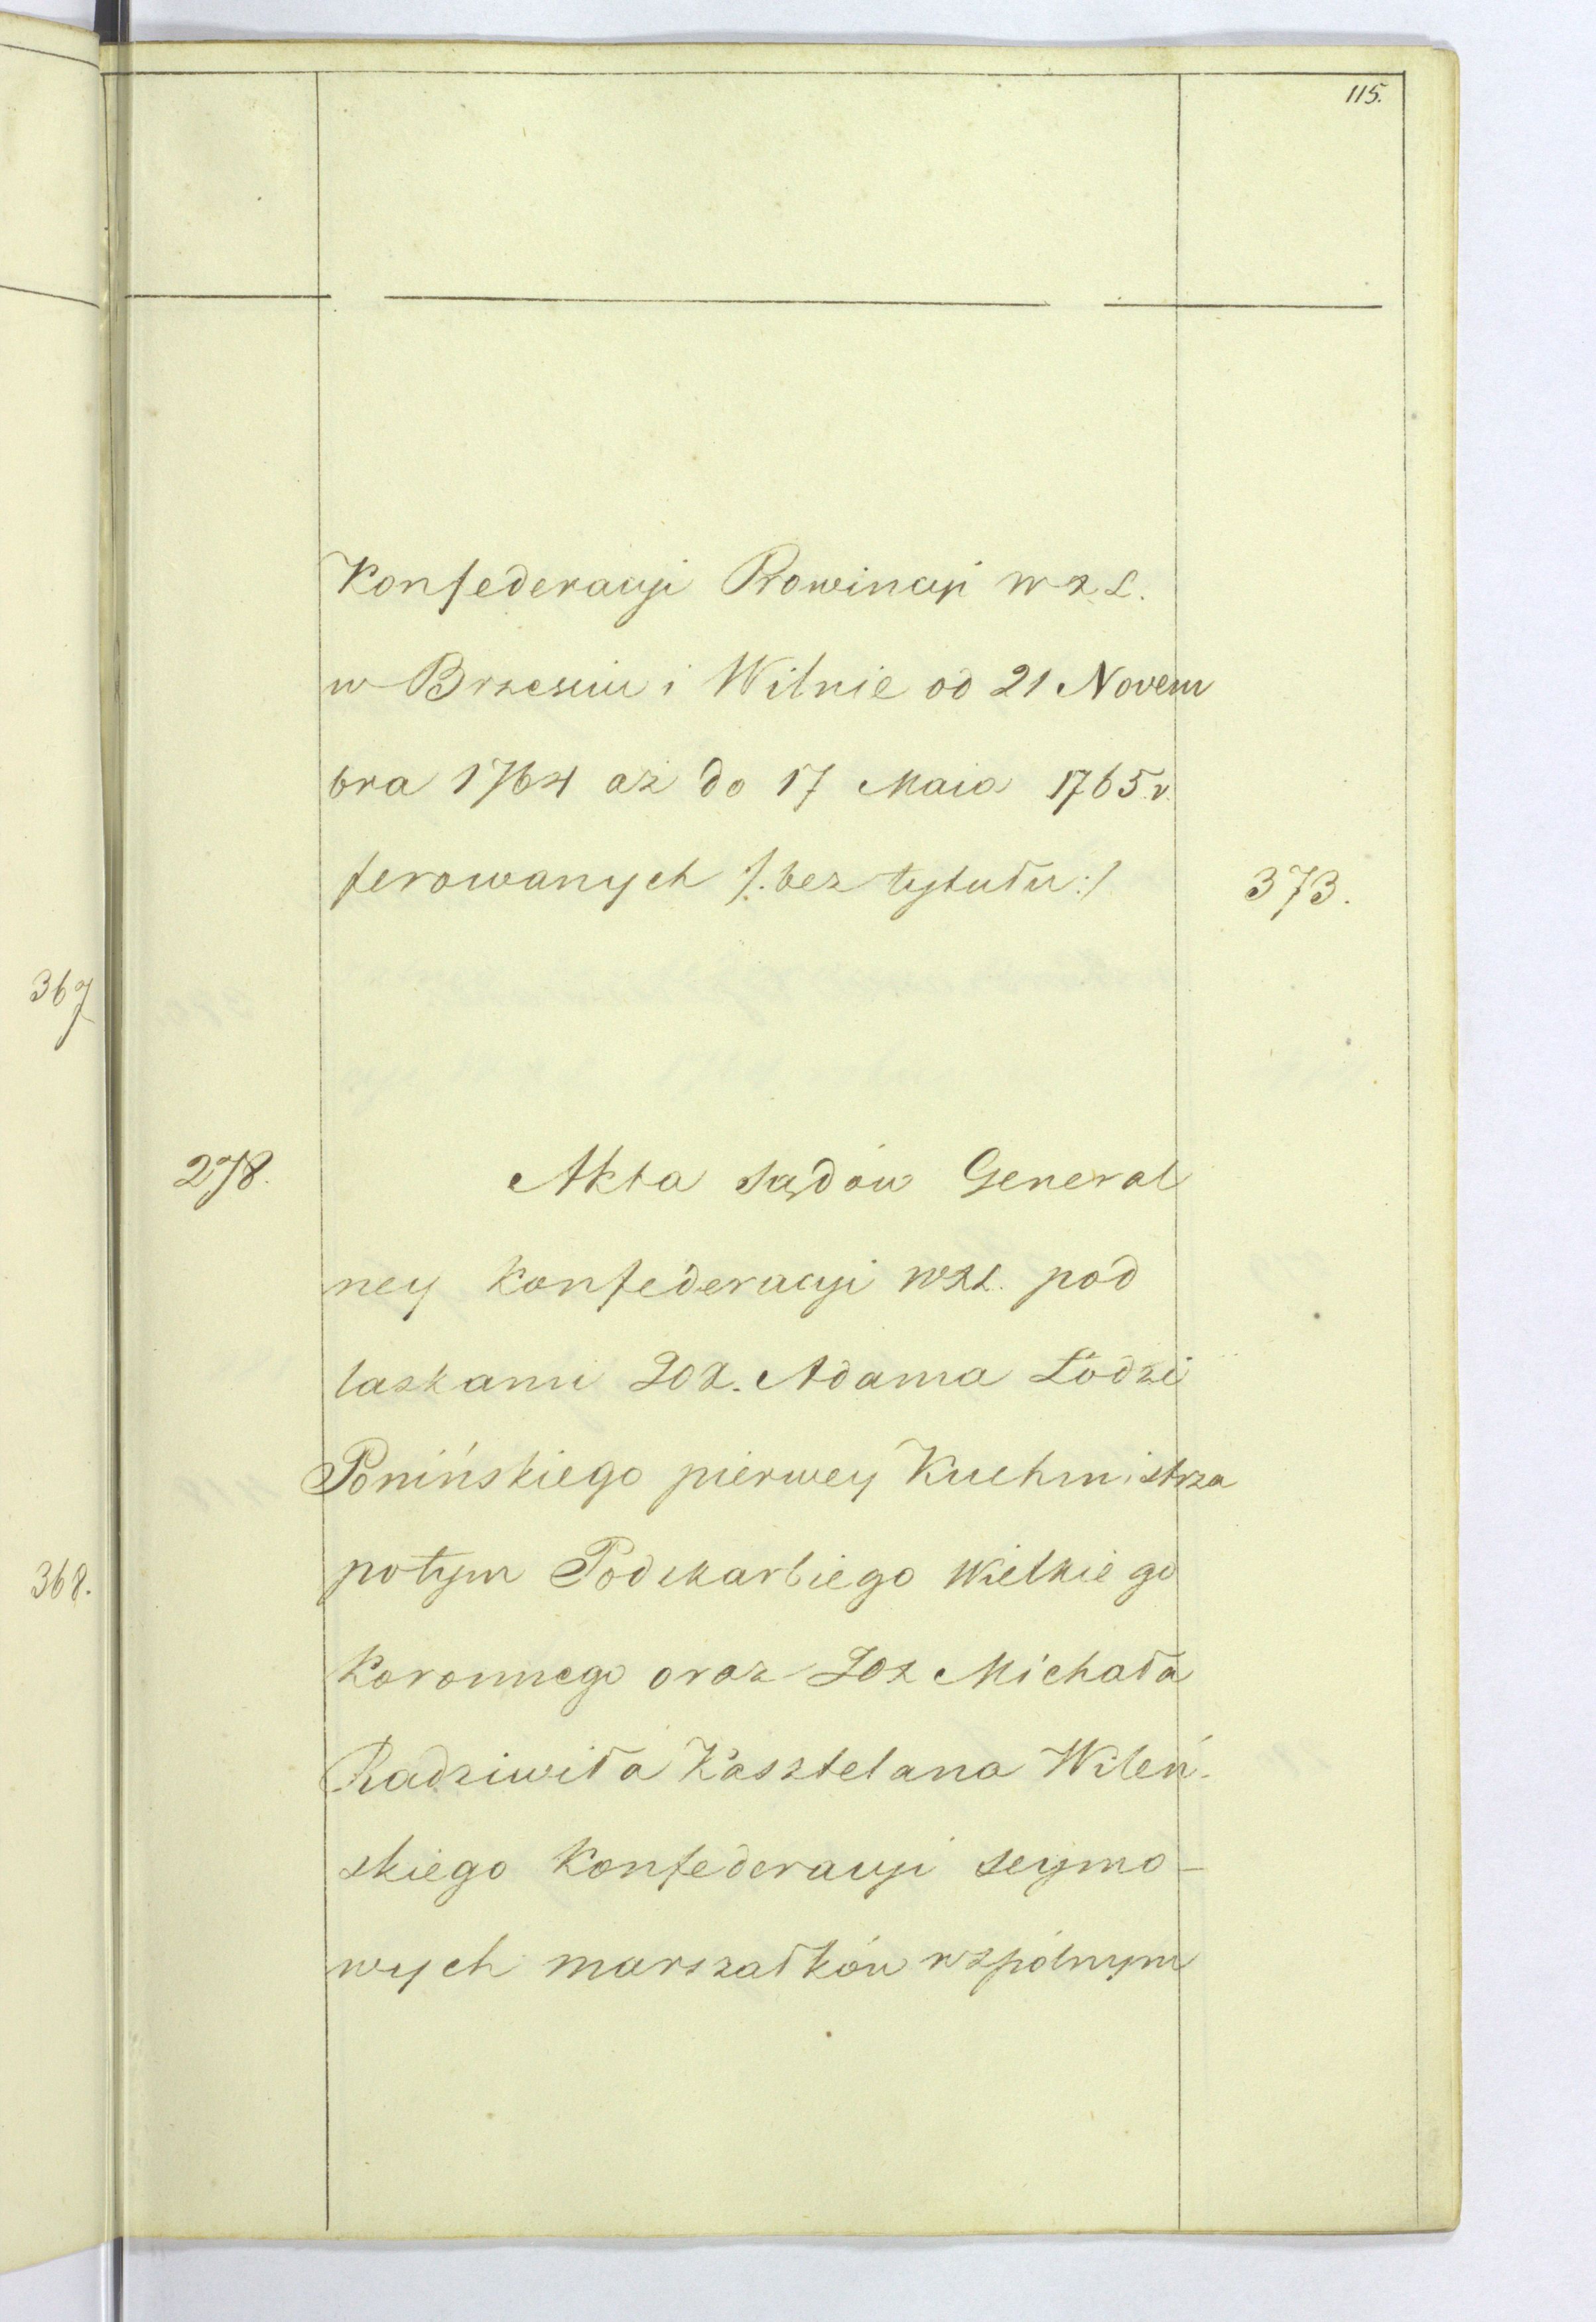 115.
Konfederacyi Prowincyi W X L.
w Brześciu i Wilnie od 21 Novem
bra 1764 aż do 17 Maia 1765 r.
ferowanych /: bez tytułu :/ 373.
367
278. Akta sądów General
ney Konfederacyi WXL. pod
laskami JOX. Adama Łodzi
Ponińskiego pierwey Kuchmistrza
potym Podskarbiego Wielkiego
368.
Koronnego oraz JOX Michała
Radziwiła Kasztelana Wileń-
skiego Konfederacyi seymo-
wych marszałków wspólnym